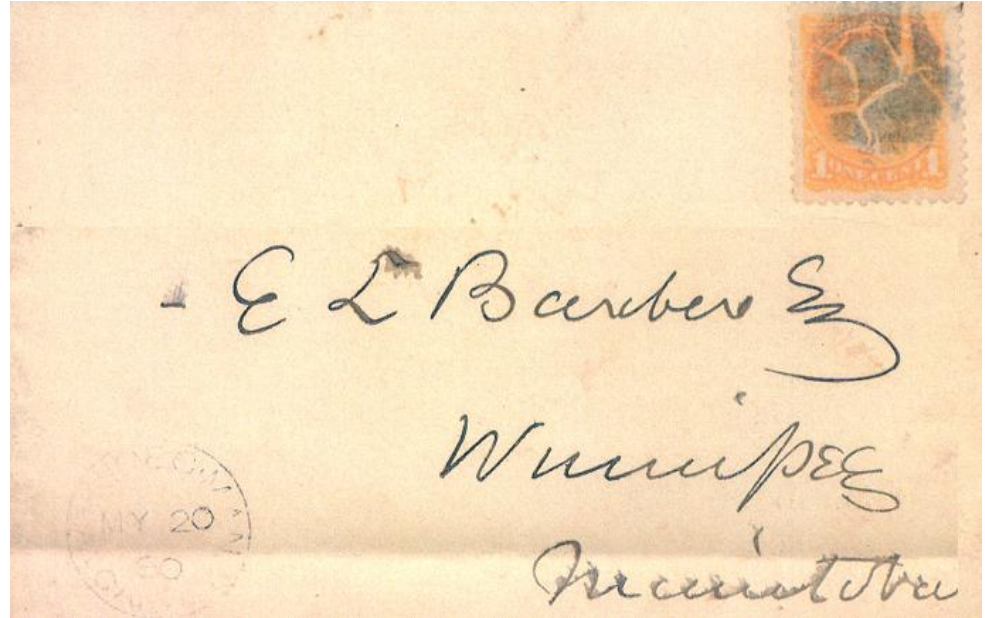 1 ONE CENT 1
E L Barber Esq
Winnipeg
Manitoba
MY 20